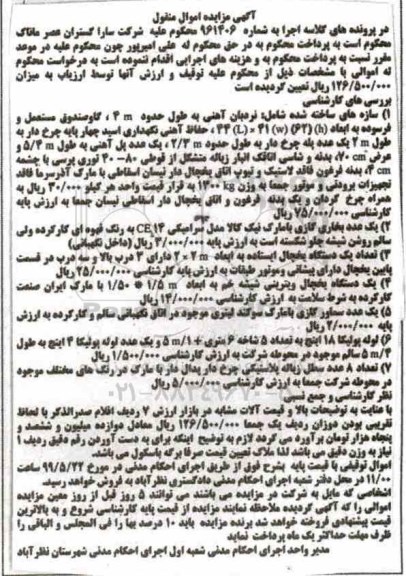 آگهی مزایده اموال منقول
در پرونده های کلاسه اجرا به شماره ۹۶۱۴۰۶ محکوم علیه شرکت سارا گستران عصر ماناک
محکوم است به پرداخت محکوم به در حق محکوم له علی امیرپور چون محکوم علیه در موعد
مقرر نسبت به پرداخت محکوم به و هزینه های اجرایی اقدام ننموده است به درخواست محکوم
له اموالی با مشخصات ذیل از محکوم علیه توقیف و ارزش آنها توسط ارزیاب به میزان
۱۲۶/۵۰۰/۰۰۰ ریال تعیین گردیده است
بررسی های کارشناسی
۱) سازه های ساخته شده شامل: نردبان آهنی به طول حدود ۴ m ، گاوصندوق مستعمل و
فرسوده به ابعاد (h) ۶۲* (w) ۴۱ * (L) ۴۳ ، حفاظ آهنی نگهداری اسید چهار پایه چرخ دار به
طول ۲ m یک عدد پله چرخ دار به طول حدود ۲/۳ m ، یک عدد پل آهنی به طول ۵/۴ m و
عرض ۷۰ cm، بدنه و شاسی اتاقک انبار زباله متشکل از قوطی ۸۰- ۴۰ توری پرسی با چشمه
۴ cm، بدنه فرغون فاقد لاستیک و تیوپ اتاق یخچال دار نیسان اسقاطی با مارک آذرسرما فاقد
تجهیزات برودتی و موتور جمعا به وزن ۱۳۰۰ kg به قرار قیمت واحد هر کیلو ۳۰/۰۰۰ ریال به
همراه چرخ گردان و یک بدنه فرغون و اتاق یخچال دار اسقاطی نیسان جمعا به ارزش پایه
کارشناسی ۷۵/۰۰۰/۰۰۰ ریال
۲) یک عدد بخاری گازی با مارک نیک کالا مدل سرامیکی CE۱۴ به رنگ قهوه ای کارکرده ولی
سالم روشن شیشه جلو شکسته است به ارزش پایه ۳/۰۰۰/۰۰۰ ریال (داخل نگهبانی)
۳) تعداد یک دستگاه یخچال ایستاده به ابعاد ۲ m * ۲ دارای ۳ درب بالا و سه درب در قسمت
پایین یخچال دارای پیشانی و موتور طبقات به ارزش پایه کارشناسی ۲۵/۰۰۰/۰۰۰ ریال
۴) یک دستگاه یخچال ویترینی شیشه خم به ابعاد ۱/۵ m * ۱/۵۰ با مارک ایران صنعت
کارکرده به شرط سلامت به ارزش کارشناسی ۱۴/۰۰۰/۰۰۰ ریال
۵) یک عدد سماور گازی با مارک سوکند لیتری موجود در اتاق نگهبانی سالم و کارکرده به ارزش
پایه ۲/۰۰۰/۰۰۰ ریال
۶) لوله پولیکا ۱۸ اینچ به تعداد ۵ شاخه ۶ متری + ۵/۱ m و یک عدد لوله پولیکا ۴ اینچ به طول
۵/۴ m سالم موجود در محوطه شرکت به ارزش کارشناسی ۱/۵۰۰/۰۰۰ ریال
۷) تعداد ۸ عدد سطل زباله پلاستیکی چرخ دار پدال دار با مارک در رنگ های مختلف موجود
در محوطه شرکت جمعا به ارزش کارشناسی ۵/۰۰۰/۰۰۰ ریال
نظر کارشناسی و جمع نسبی
با عنایت به توضیحات بالا و قیمت آلات مشابه در بازار ارزش ۷ ردیف اقلام صدرالذکر با لحاظ
تقریبی بودن دوزان ردیف یک جمعا ۱۲۶/۵۰۰/۰۰۰ ریال معادل دوازده میلیون و ششصد و
پنجاه هزار تومان برآورد می گردد لازم به توضیح اینکه برای به دست آوردن رقم دقیق ردیف ۱
نیاز به وزن دقیق می باشد لذا ملاک تعیین قیمت صرفا برگه باسکول می باشد.
اموال توقیفی با قیمت پایه بشرح فوق از طریق اجرای احکام مدنی در مورخ ۹۹/۵/۲۲ ساعت
۱۱/۰۰ در محل دفتر شعبه اجرای احکام مدنی دادگستری نظرآباد به فروش خواهد رسید.
اشخاصی که مایل به شرکت در مزایده می باشند می توانند ۵ روز قبل از روز معین مزایده
اموالی را که آگهی گردیده ملاحظه نمایند مزایده از قیمت پایه کارشناسی شروع و به بالاترین
قیمت پیشنهادی فروخته خواهد شد برنده مزایده باید ۱۰ درصد بها را فی المجلس و الباقی را
ظرف مهلت حداکثر یک ماه پرداخت نماید
مدیر واحد اجرای احکام مدنی شعبه اول اجرای احکام مدنی شهرستان نظرآباد
۰۲۱-۸۸۳۴۹۶۷۰-۵